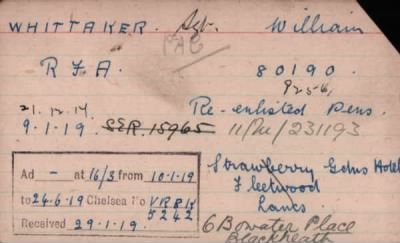 WHITTAKER. Sgt. William
R F A. 80190.
21.12.14. Re-enlisted Pens.
9.1.19. SER. 15965 11/M/231193
Ad — at 16/3 from 10.1.19
to 24.6.19 Chelsea No VRRK 5242
Received 29.1.19.
Strawberry Gdns Hotel
Fleetwood
Lancs.
6 Bowater Place
Blackheath